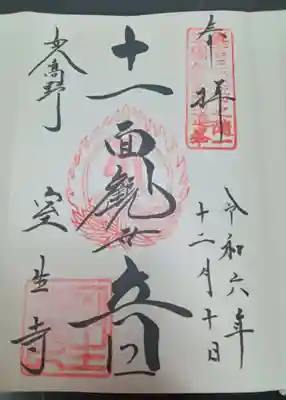 奉拝
令和六年
十二月十日
十一面観世音
女高野
室生寺